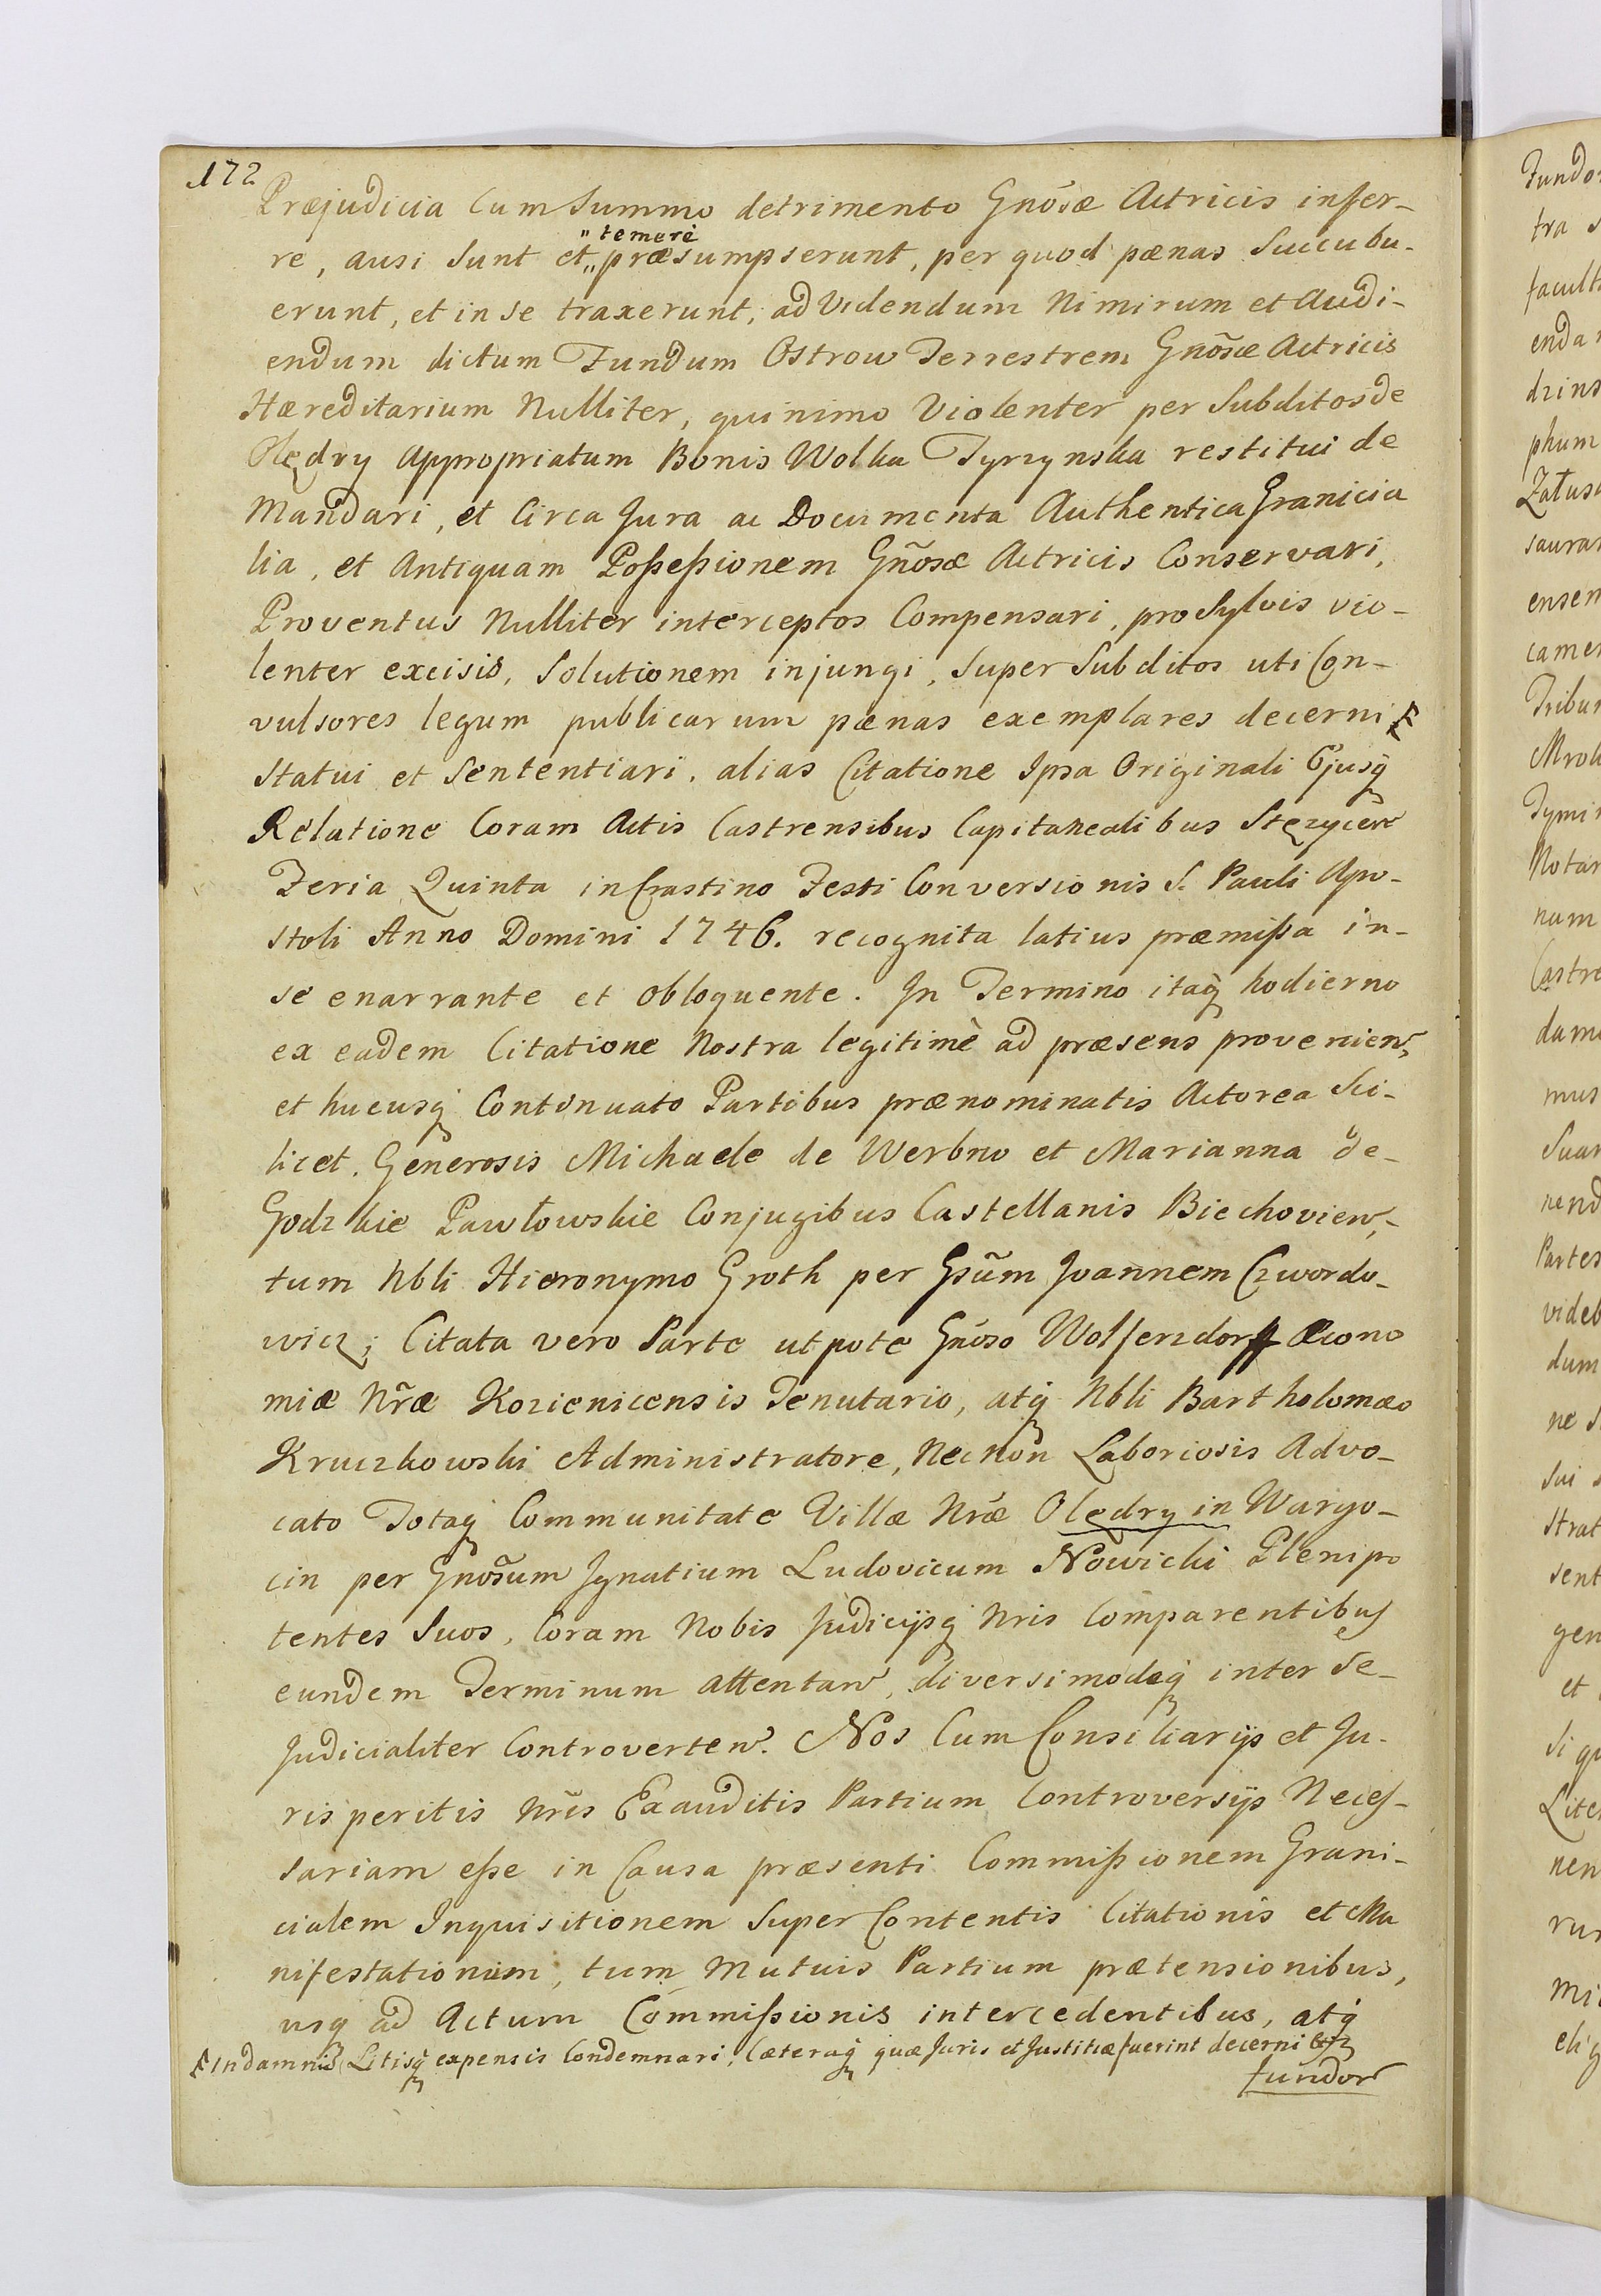 172
Præjudicia Cum Summo detrimento Gnõsæ Actricis infer-
re, ausi sunt et „temerè„ præsumpserunt, per quod pænas Succubu-
erunt, et in se traxerunt, ad Videndum Nimirum et Audi-
endum dictum Fundum Ostrow Terrestrem Gnõsæ Actricis
Hæreditarium Nulliter, quinimo Violenter per Subditos de
Olędry Appropriatum Bonis Wolka Tyrzynska restitui de
Mandari, et Circa Jura ac Documenta Authentica Granicia
lia, et Antiquam Poßeßionem Gñosæ Actricis Conservari,
Proventus Nulliter interceptos Compensari, pro Sylvis vio-
lenter excisis, Solutionem injungi, Super Subditos uti Con-
vulsores legum publicarum pænas exemplares decerni
Statui et Sententiari, alias Citatione Ipsa Originali Ejusq
Relatione Coram Actis Castrensibus Capitanealibus Stęzycen
Feria Quinta in Crastino Festi Conversionis S. Pauli Apo-
stoli Anno Domini 1746. recognita latius præmißa in-
se enarrante et obloquente. In Termino itaq hodierno
ex eadem Citatione Nostra legitimè ad præsens provenien,
et hucusq Continuato Partibus prænominatis Actorea Sci-
licet, Generosis Michaele de Werbno et Marianna de-
Godzkie Pawłowskie Conjugibus Castellanis Biechovien,-
tum Nbli Hieronymo Groth per Gsũm Joannem Czwordo-
wicz; Citata vero Parte utpote Gnõso Wolfenzdorff Æcono
miæ Nr̃æ Kozienicensis Tenutario, atq Nbli Bartholomæo
Kruczkowski Administratore, Necnon Laboriosis Advo-
cato Totaq Communitate Villæ Nræ Olędry in Wargo-
cin per Gnosũm Ignatium Ludovicum Nowicki Plenipo
tentes Suos, Coram Nobis Judicijsq Nris Comparentibus
eundem Terminum attentan, diversimodeq inter Se-
Judicialiter Controverten. Nos Cum Consiliarijs et Ju-
ris peritis Nr̃is Exauditis Partium Controversijs Neces-
sariam eße in Causa præsenti Commißionem Grani-
cialem Inquisitionem Super Contentis Citationis et Ma
nifestationum, tum Mutuis Partium prætensionibus,
usq ad Actum Commißionis intercedentibus, atq
In damnis Litisq expensis Condemnari, Cæteraq quæ Juris et Justitiæ fuerint decerni
fundor